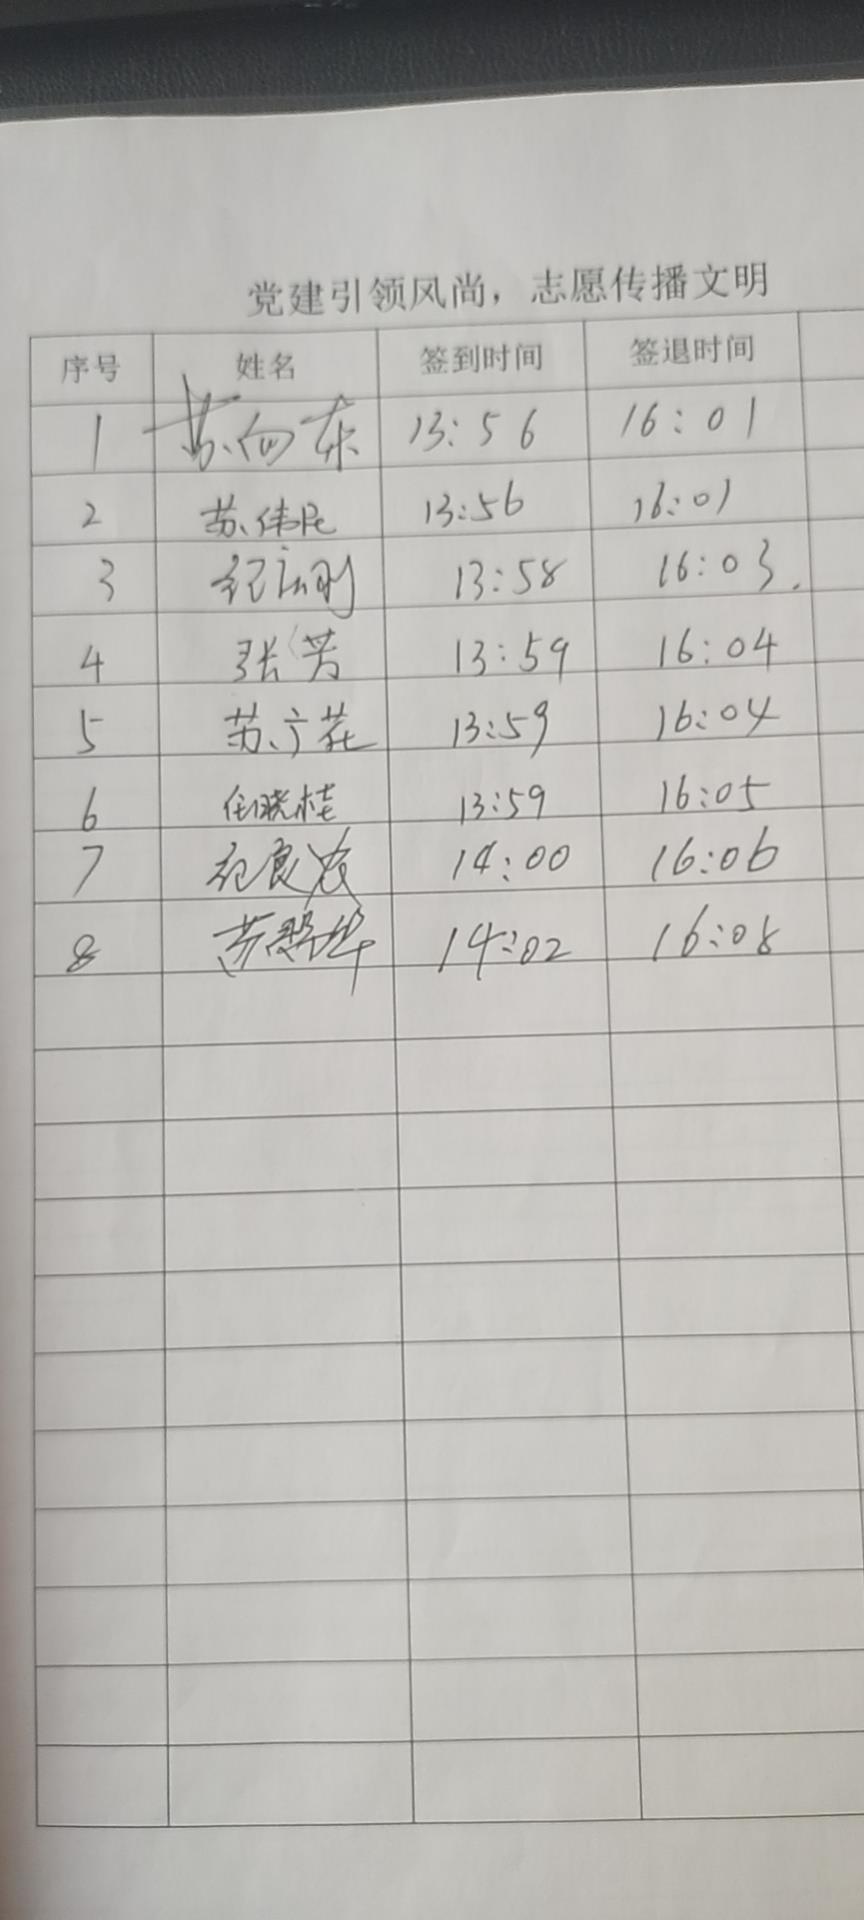 党建引领风尚，志愿传播文明
序号 姓名 签到时间 签退时间
1 苏向东 13:56 16:01
2 苏伟民 13:56 16:01
3 13:58 16:03.
4 张芳 13:59 16:04
5 苏广花 13:59 16:04
6 任晓桂 13:59 16:05
7 14:00 16:06
8 14:02 16:08